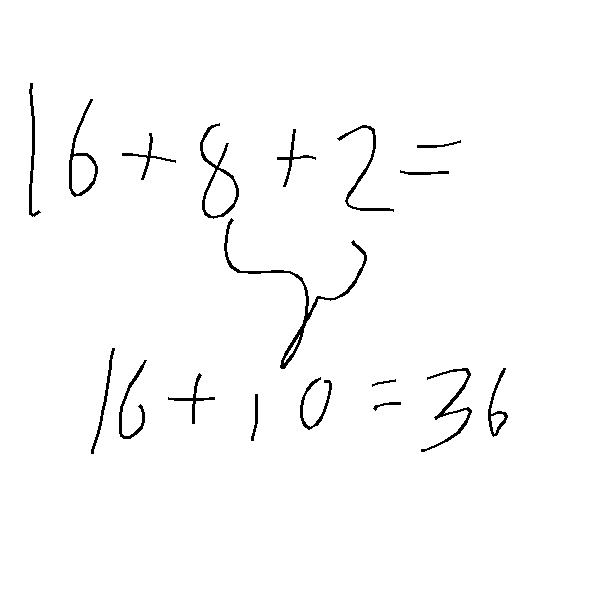 16+8+2=
16+10=36